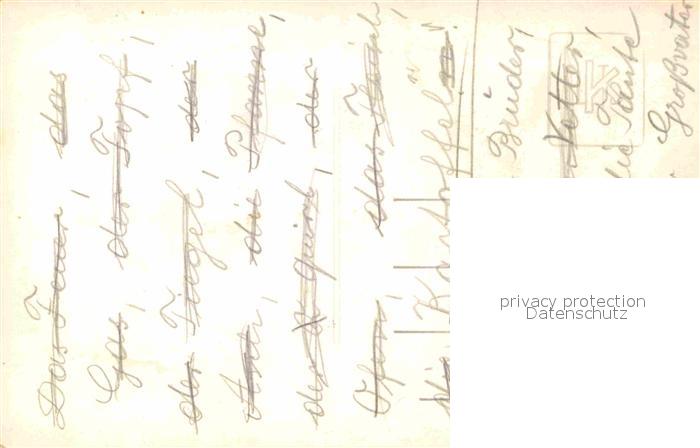 Das Feuer, das
Gas, der Topf,
der Tiegel, der
die Pfanne,
der Quirl, der
Ofen, das
die Kartoffel
Brüder,
Vetter,
die Tante
Großvater
privacy protection
Datenschutz